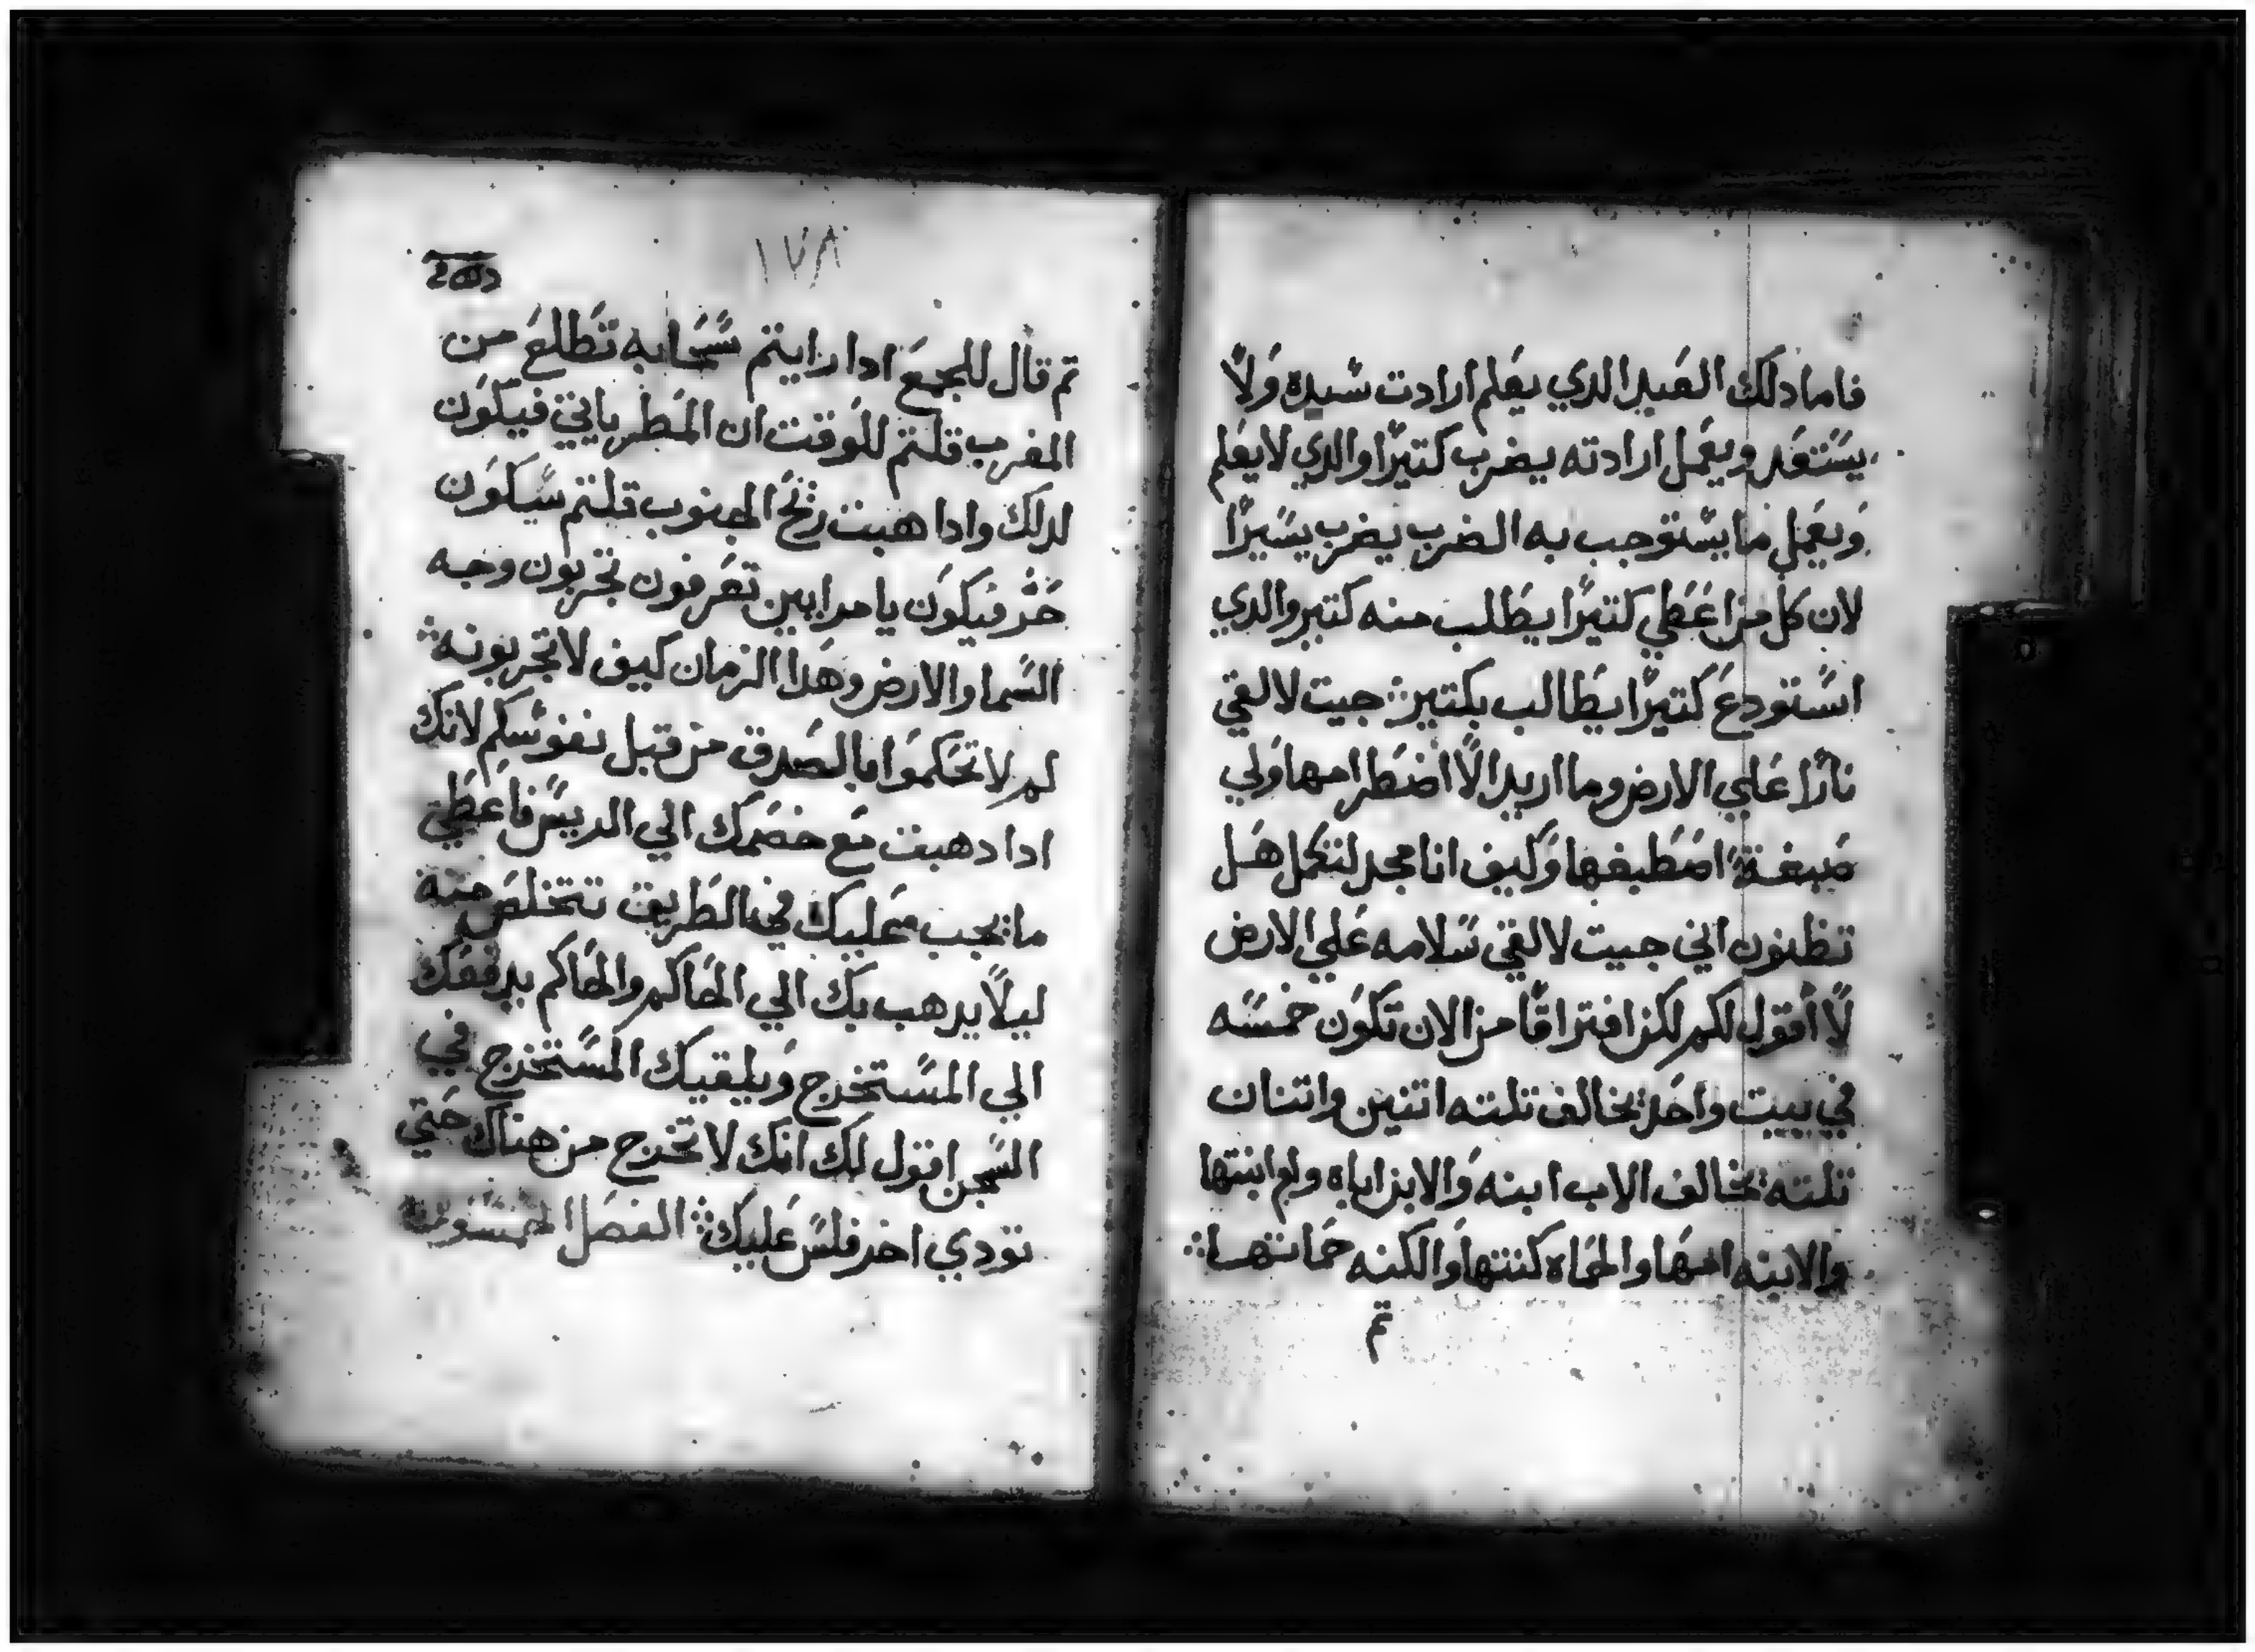 فاما دلك العبد الدي يعلم ارادت سيده ولا
يستعد ويعمل ارادته يضرب كتيرًا والدي لا يعلم
ويعمل ما يستوجب به الضرب يضرب يسيرًا
لان كل من اعطي كتيرًا يطلب منه كتير والدي
استودع كتيرًا يطالب بكتير جيت لالقي
نارًا علي الارض وما اريد الا اضطرامها ولي
صبغة اصطبغها وكيف انا مجد لتكمل هل
تظنون اني جيت لالقي سلامه علي الارض
لا اقول لكم لكن افتراقًا من الان تكون خمسه
في بيت واحد يخالف تلته اتنين واتنان
تلته يخالف الاب ابنه والابن اباه والام ابنتها
والابنه امها والحماه كنتها والكنه حماتها
تم
١٧٨
تم قال للجمع ادا رايتم سحابه تطلع من
المغرب قلتم للوقت ان المطر ياتي فيكون
لدلك وادا هبت ريح الجنوب قلتم سيكون
حر فيكون يا مرايين تعرفون تجربون وجه
السما والارض وهدا الزمان كيف لا تجربونه
لم لا تحكموا بالصدق من قبل نفوسكم لانك
ادا دهبت مع خصمك الي الريس فاعطي
ما يجب عليك في الطريق تتخلص منه
ليلا يدهب بك الي الحاكم والحاكم يدفعك
الي المستخرج ويلقيك المستخرج في
السجن اقول لك انك لا تخرج من هناك حتي
تودي اخر فلس عليك الفصل